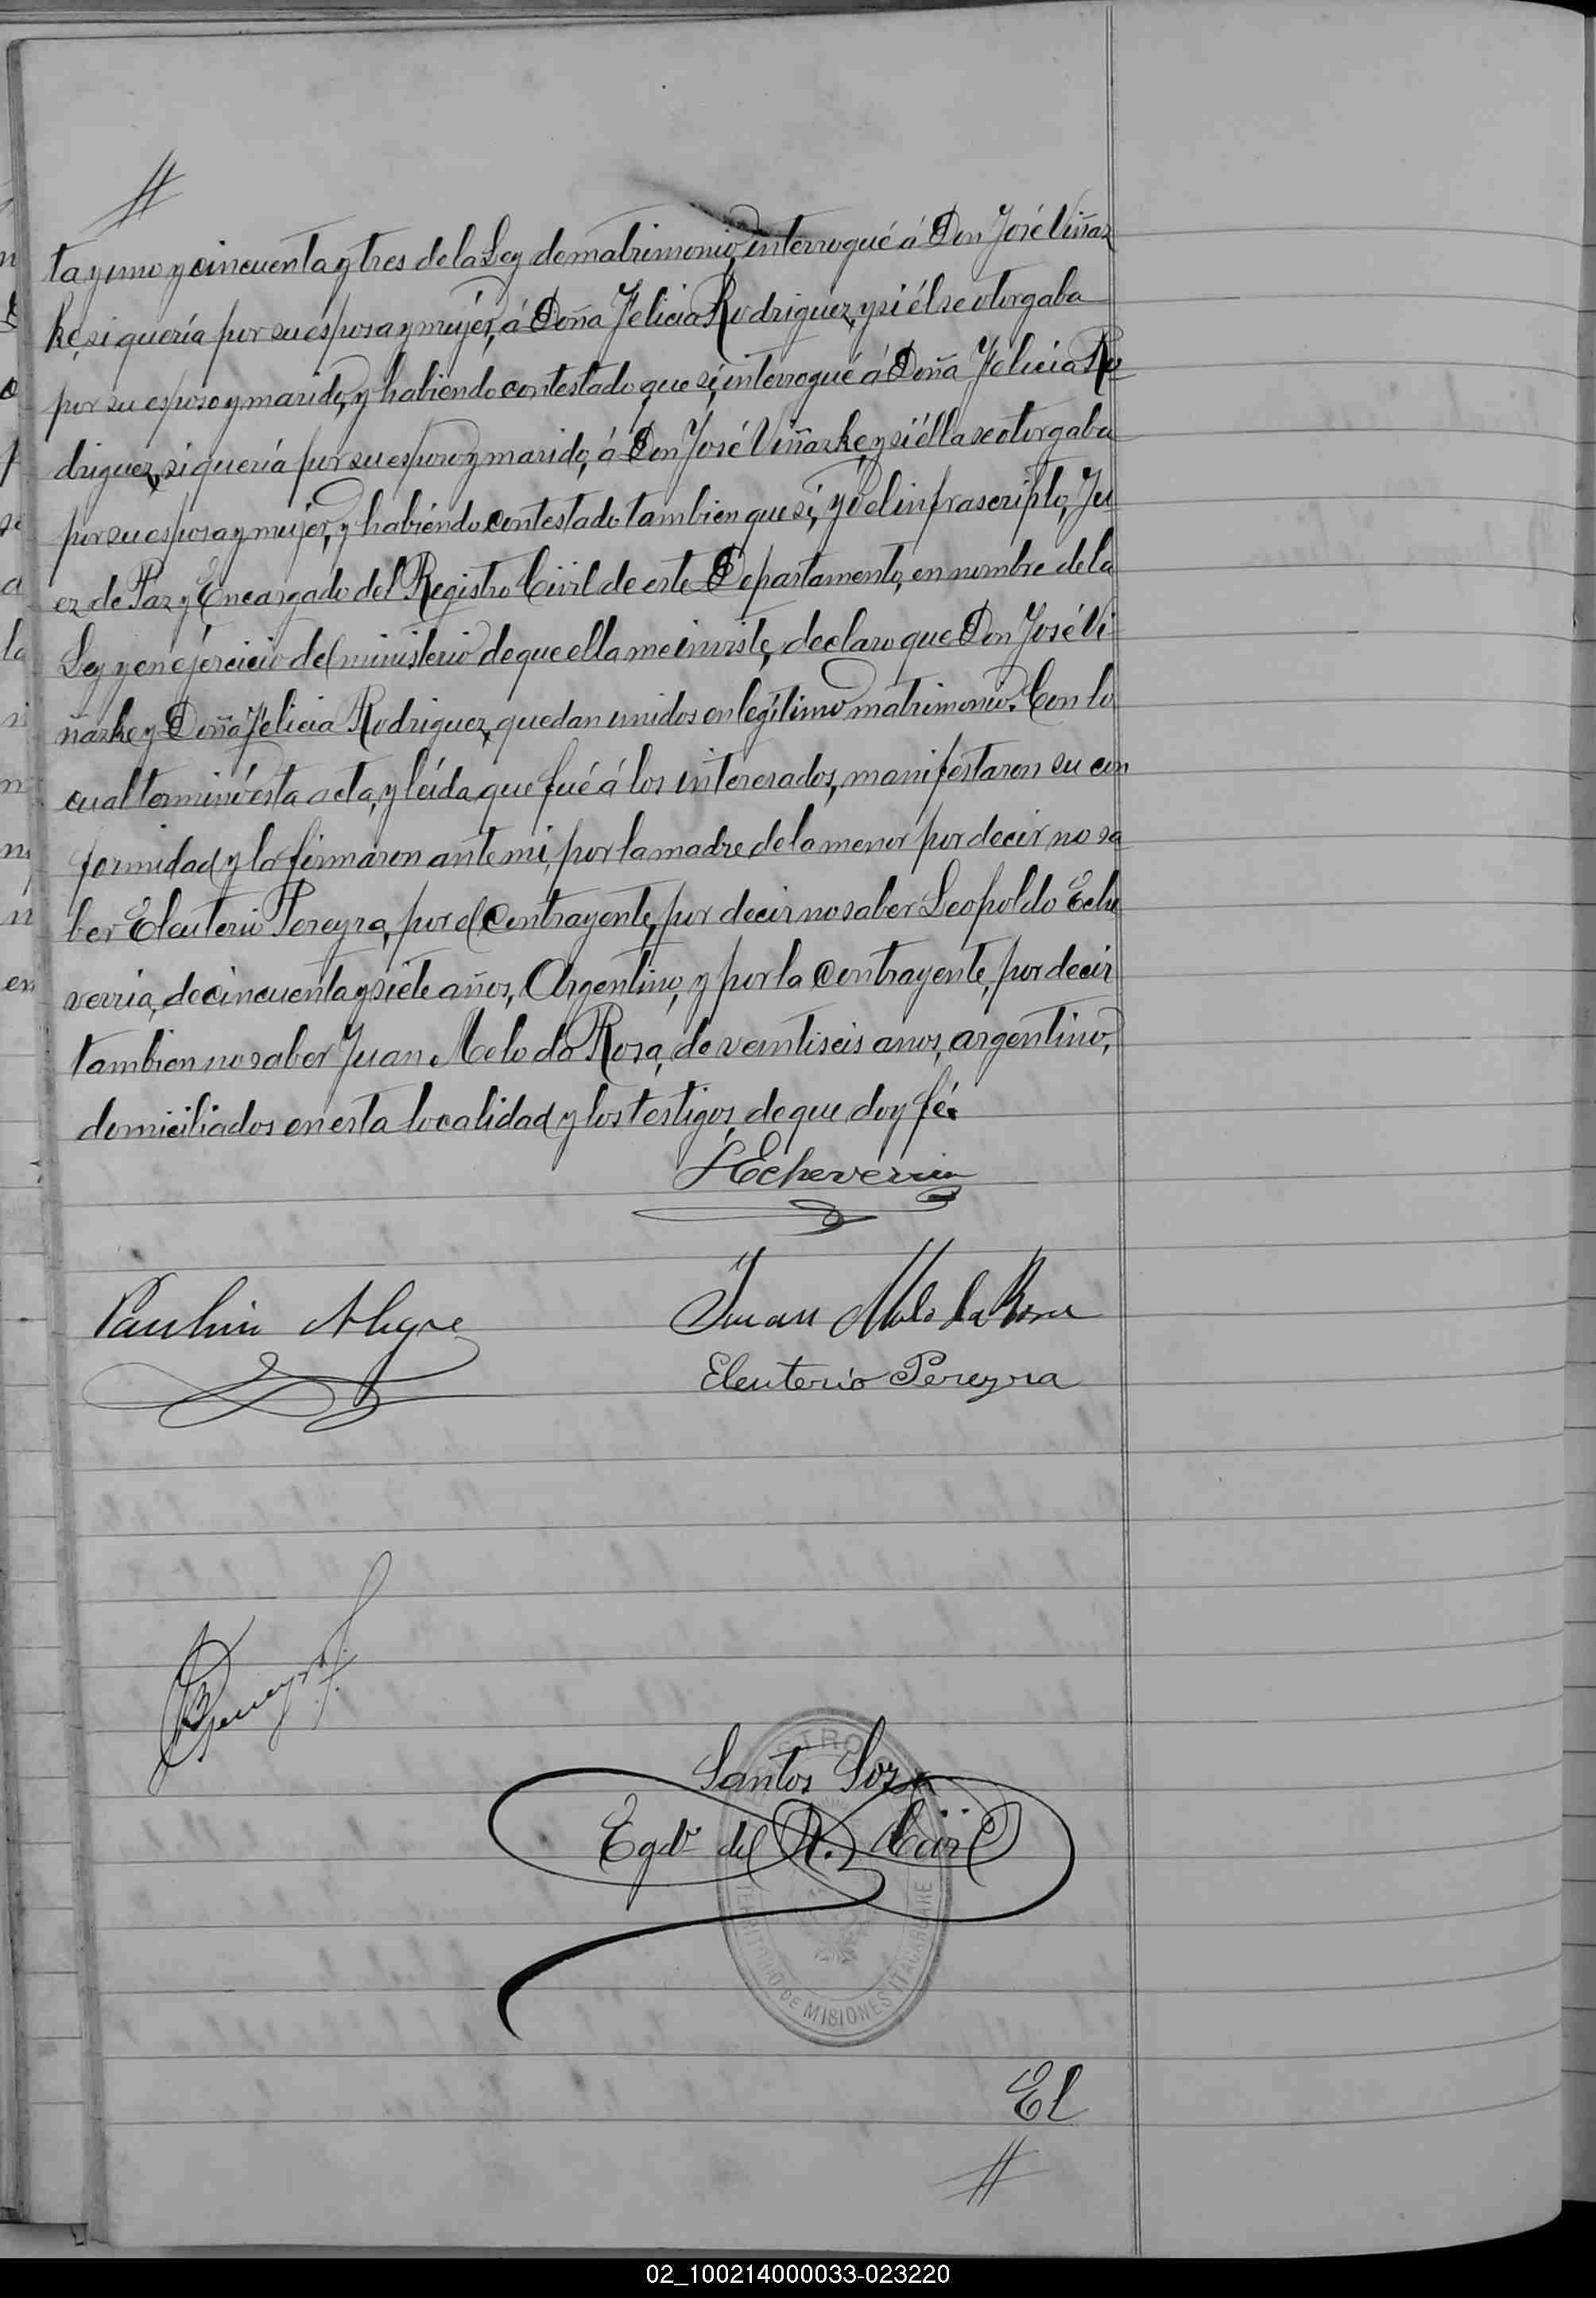 ta y uno y cincuenta y tres de la Ley de matrimonio, interrogué á Don José Viñaz
ke, si quería por su esposa y mujer, á Doña Felicia Rodriguez, y si él se otorgaba
por su esposo y marido, y habiendo contestado que sí, interrogué á Doña Felicia Ro
driguez, si quería por su esposo y marido, á Don José Viñazke, y si élla se otorgaba
por su esposa y mujer, y habiéndo contestado tambien que si, yo el infrascripto, Ju
ez de Paz y Encargado del Registro Civil de este Departamento, en nombre de la
Ley y en ejercicio del ministerio de que ella me inviste, declaro que Don José Vi
ñazke y Doña Felicia Rodriguez, quedan unidos en legítimo matrimonio. Con lo
cual terminó ésta acta, y leída que fué á los interesados, manifestaron su con
formidad y la firmaron ante mi, por la madre de la menor por decir no sa
ber Eleuterio Pereyra, por el Contrayente, por decir no saber Leopoldo Eche
verria, de cincuenta y siete años, Argentino, y por la Contrayente, por decir
tambien no saber Juan Melo da Rosa, de veintiseis anos, argentino,
domiciliados en esta localidad y los testigos, de que doy fé.
LEcheverria
Paulin Alegre Juan Melo da Rosa
Eleuterio Pereyra
Santos Sosa
Egdo del R. Civil
TERRITORIO DE MISIONES ITACARUARE
El
02_100214000033-023220